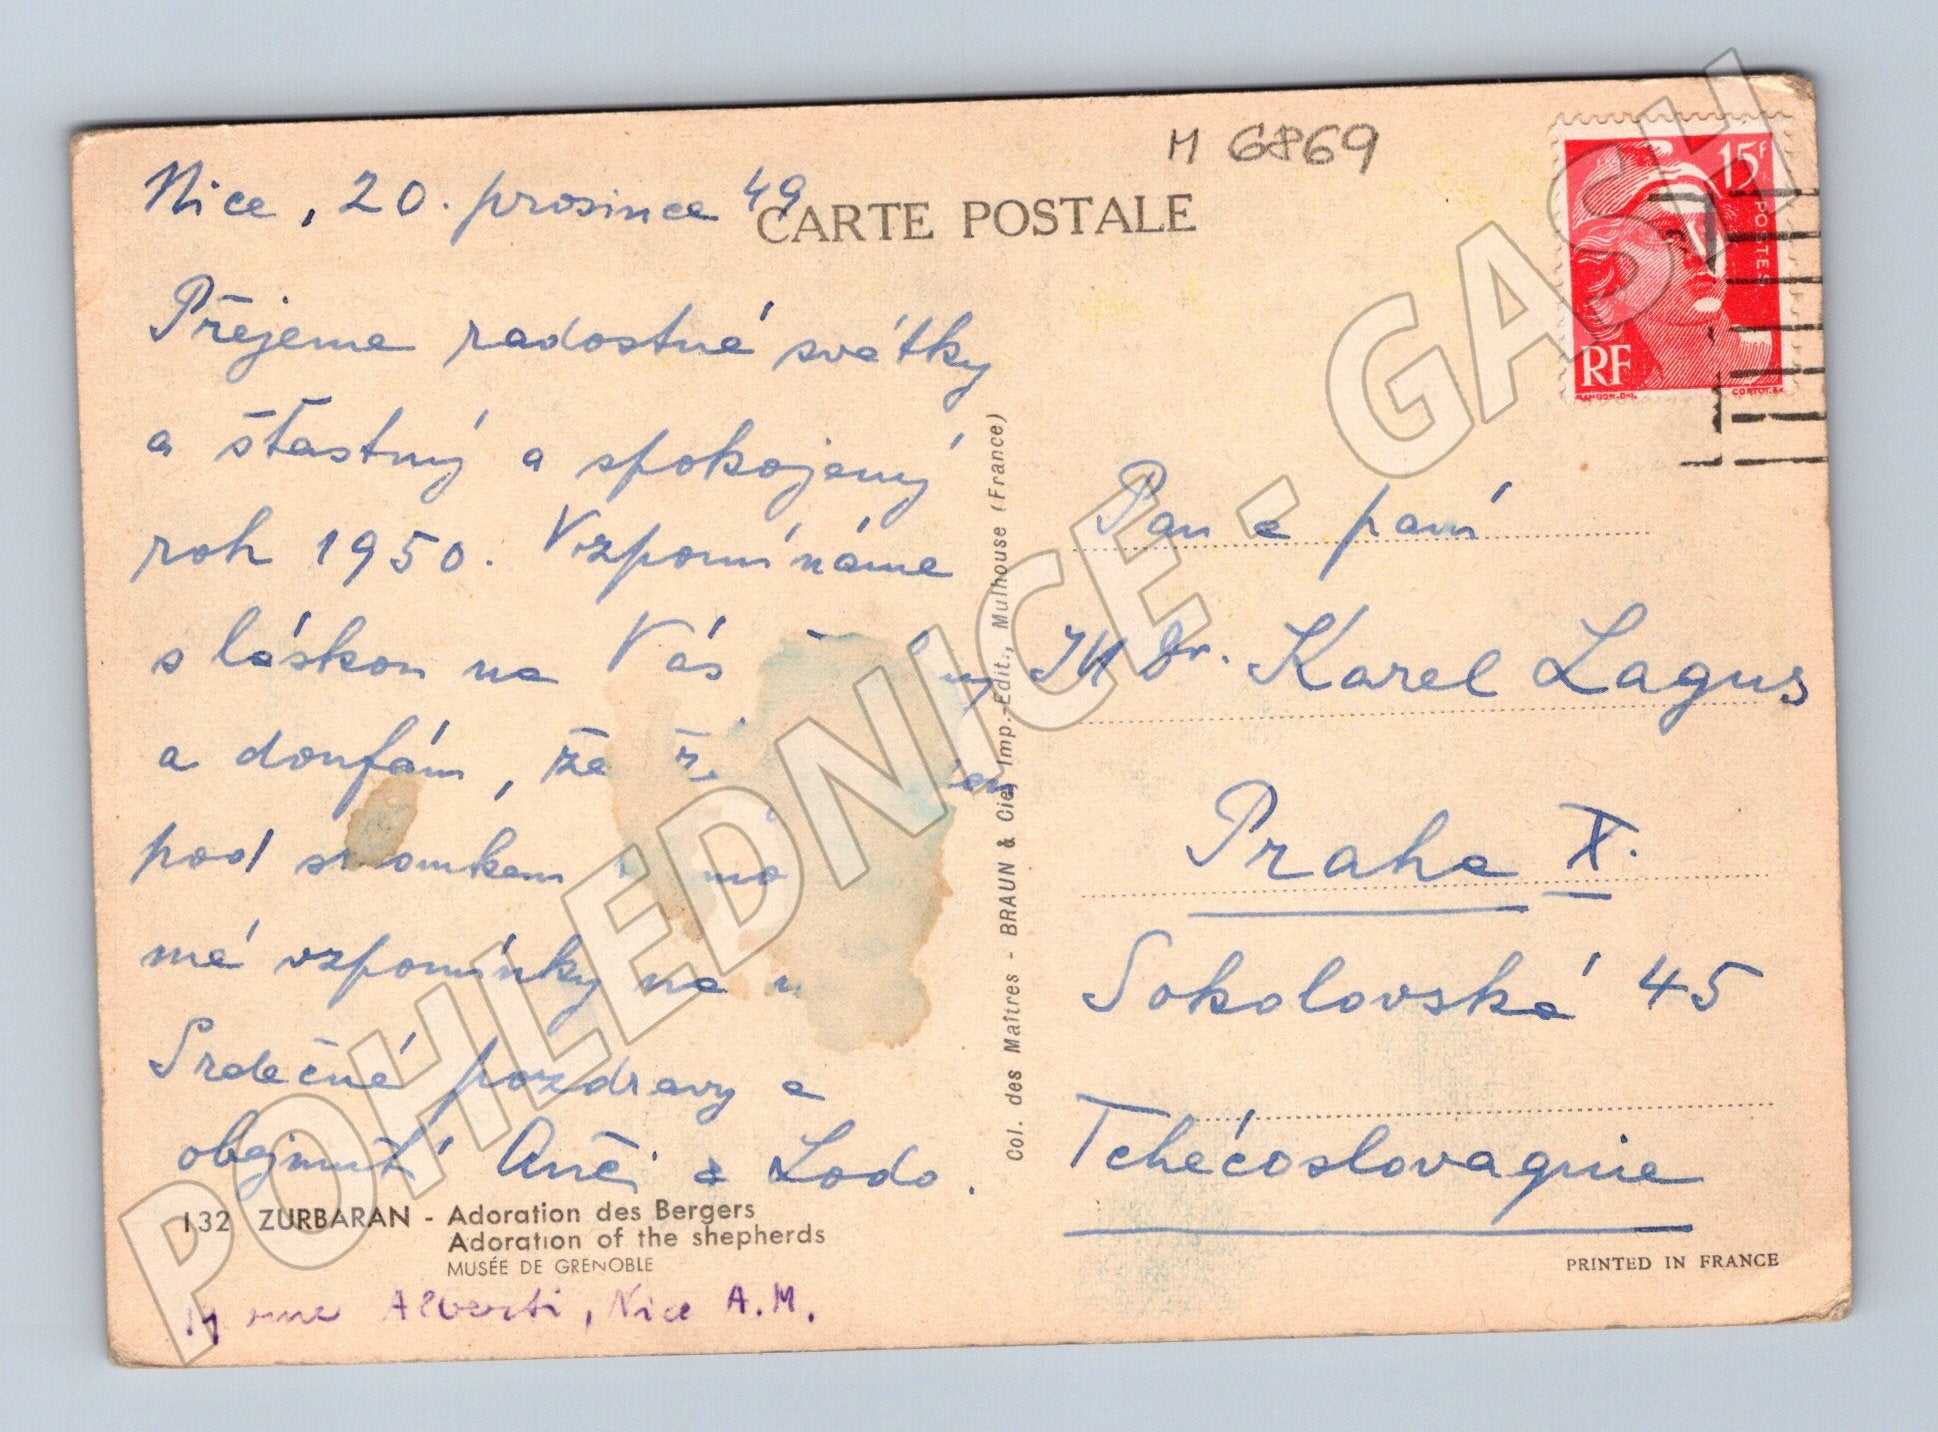 M 6869
CARTE POSTALE
15F
POSTES
RF
GANDON.DEL.
CORTOT.SC
Nice, 20. prosince 49
Přejeme radostné svátky
a šťastný a spokojený
rok 1950. Vzpomínáme
s láskou na Vás
a doufám, že
pod stromkem
mé vzpomínky na
Srdečné pozdravy a
objmutí Anči a Lodo.
132 ZURBARAN - Adoration des Bergers
Adoration of the shepherds
MUSÉE DE GRENOBLE
rue Alberti, Nice A.M.
Col. des Maîtres - BRAUN & Cie, Imp.-Edit., Mulhouse (France)
Pan a paní
JUDr. Karel Lagus
Praha X.
Sokolovská 45
Tchécoslovaquie
PRINTED IN FRANCE
POHLEDNICE - GASH